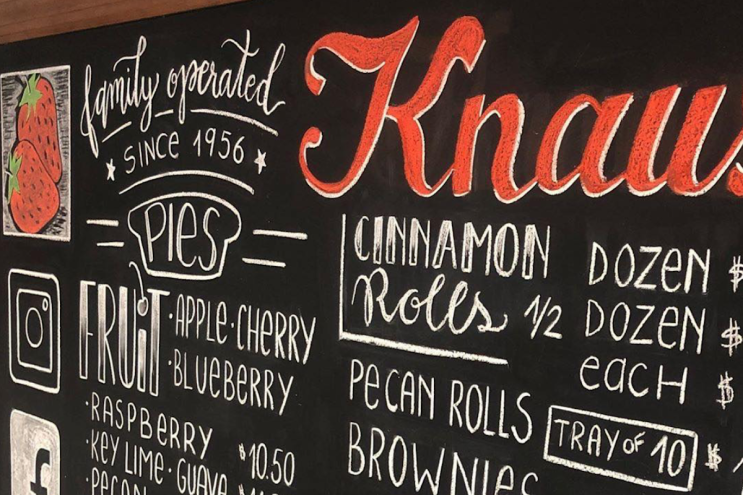 family operated
SINCE 1956
PIES
FRUIT
·APPLE·CHERRY
·BLUEBERRY
·RASPBERRY
·KEY LIME·GUAVA $10.50
·PECAN
Knaus
CINNAMON DOZEN $
Rolls 1/2 DOZEN $
each $
PECAN ROLLS
TRAY OF 10 $
BROWNIES
f